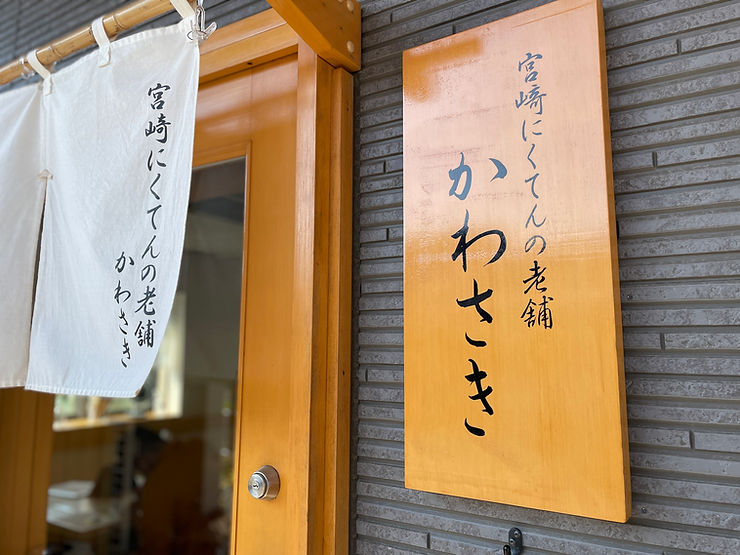 宮崎にくてんの老舗
かわさき
宮崎にくてんの老舗
かわさき